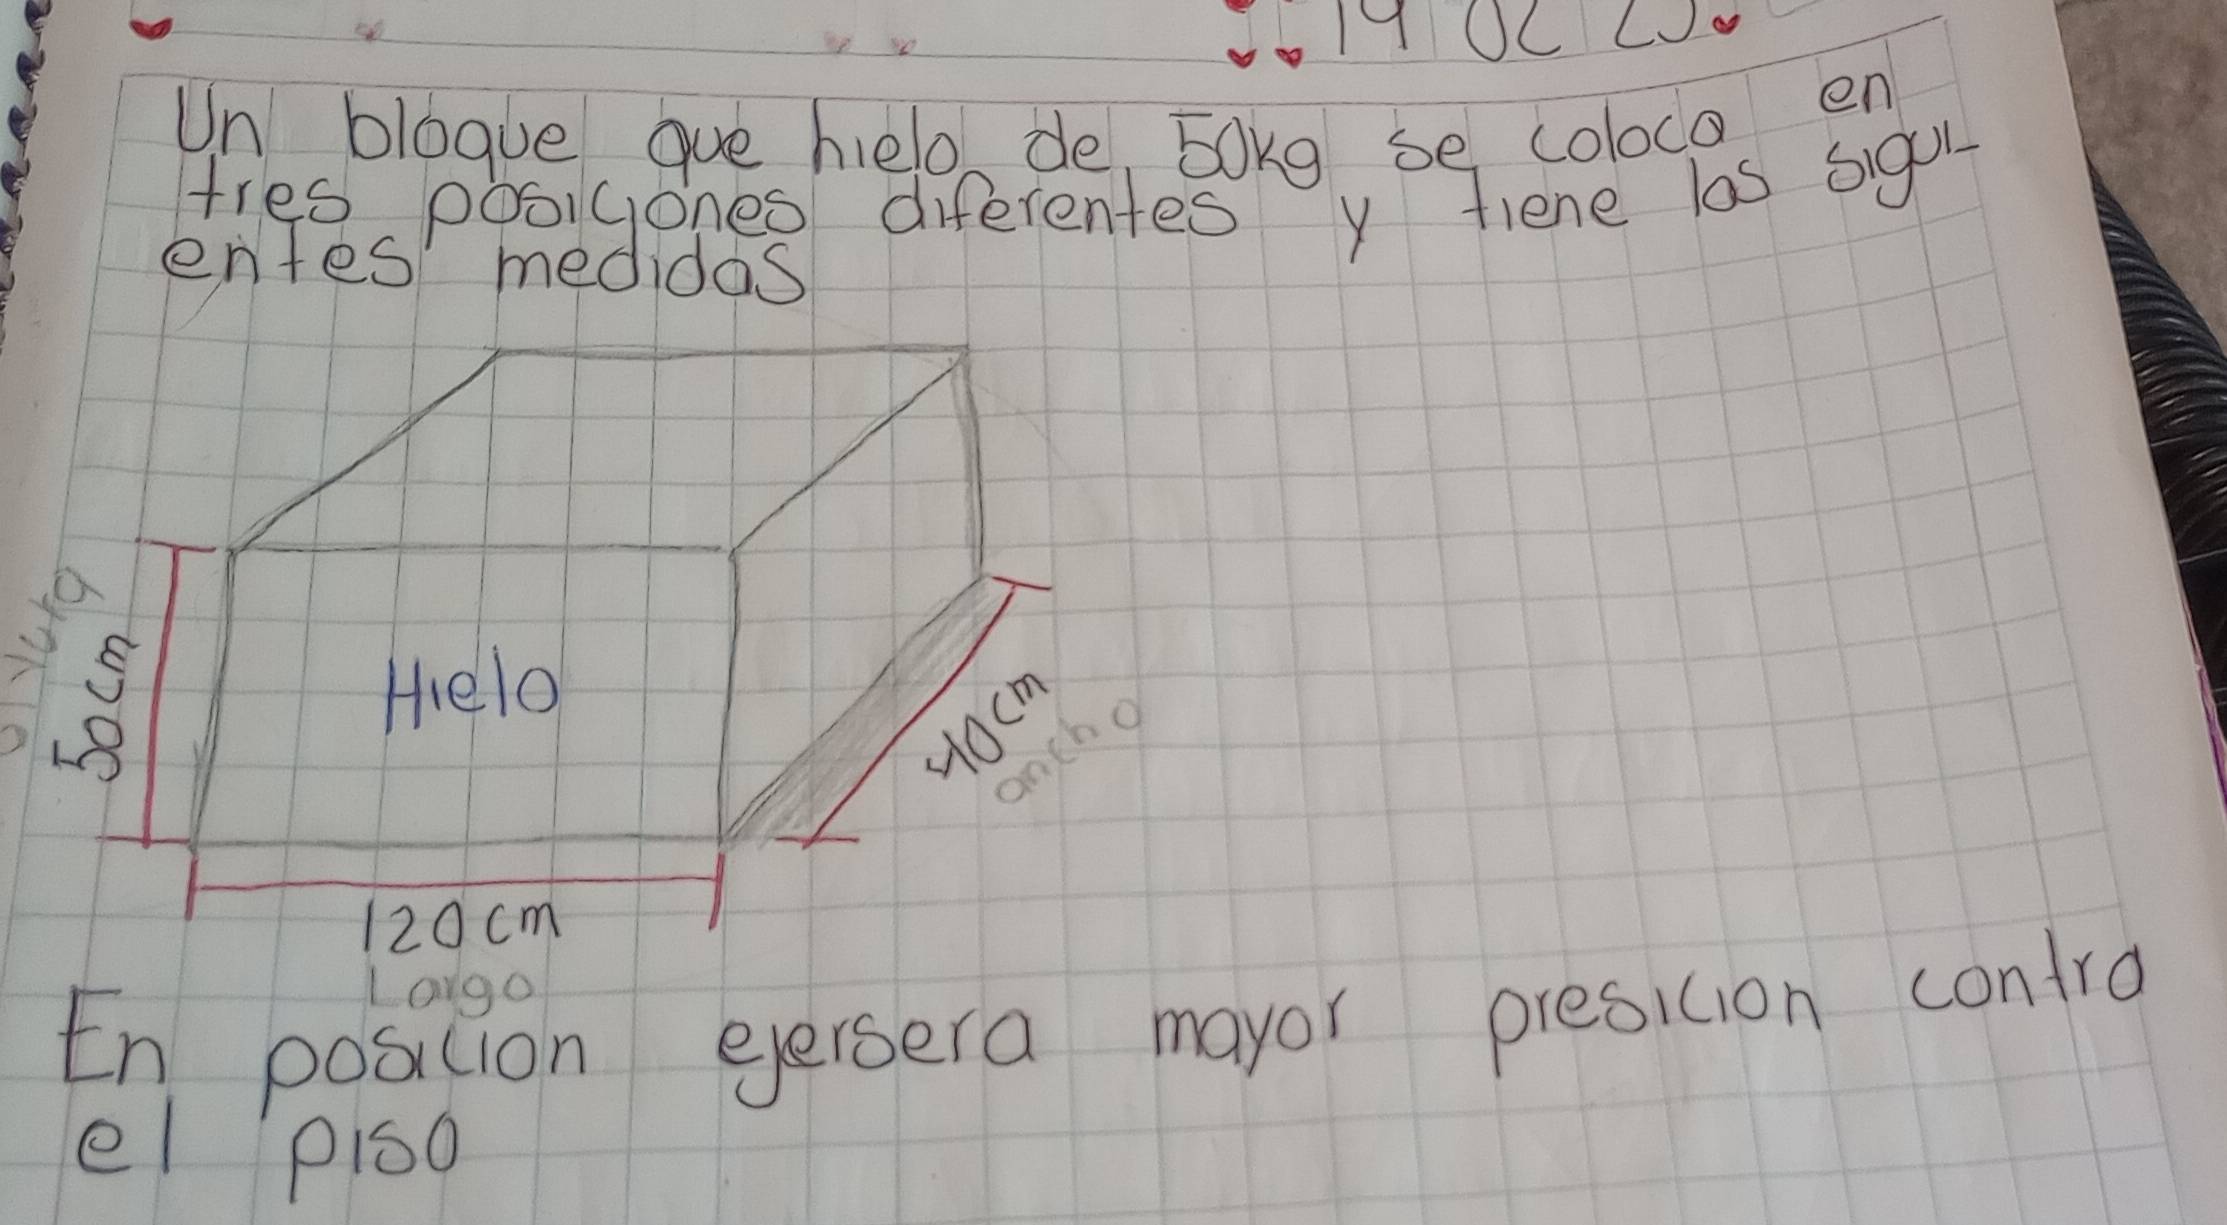 19 02 23
Un bloque que hielo de 50kg se coloca en
tres posiciones diferentes y tiene las sigui-
entes medidas
altura
50cm
Hielo
40cm
ancho
120cm
Largo
En posicion ejersera mayor presicion contra
el piso